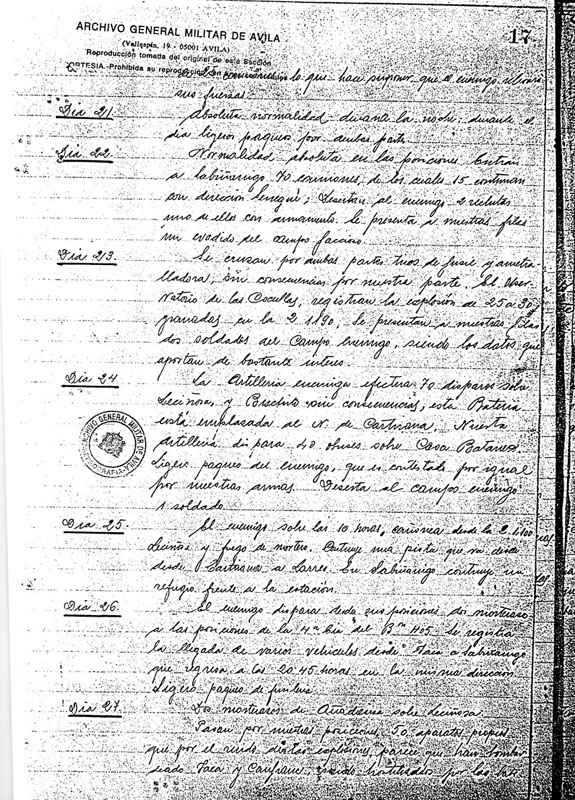 ARCHIVO GENERAL MILITAR DE AVILA
(Vallespín, 19 - 05001 AVILA)
Reproducción tomada del original de esta Sección
CORTESIA.-Prohibida su reproducción
17
camiones lo que hace suponer que el enemigo
sus fuerzas.
Dia 21. Absoluta normalidad durante la noche; durante el
dia ligeros paqueos por ambas partes.
Dia 22. Normalidad absoluta en las posiciones. Entran
a Sabiñanigo 70 camiones, de los cuales 15 continuan
con direccion Senegüe; Desertan al enemigo 2 reclutas
uno de ellos con armamento. Se presenta a nuestras filas
un evadido del campo faccioso.
Dia 23. Se cruzan por ambas partes tiros de fusil y ametra
lladora, sin consecuencias por nuestra parte. El Obser-
vatorio de las Cocullas, registran la explosión de 25 a 30
granadas en la 2. 1190, Se presentan a nuestras filas
dos soldados del Campo Enemigo, siendo los datos que
aportan de bastante interes.
Dia 24 La Artilleria enemiga efectura 70 disparos sobre
y sin consecuencias, esta Bateria
está emplazada al N. de Cartirana. Nuestra
artilleria dispara 40 obuses sobre Casa Batanero.
Ligero paqueo del enemigo, que es contestado por igual
por nuestras armas. Deserta al campo enemigo
1 soldado.
ARCHIVO GENERAL MILITAR DE AVILA
Dia 25. El enemigo sobre las 10 horas, cañonea desde la 2.
y fuego de mortero. Contruye una pista que va desde
desde Cartirana a Larres. En Sabiñanigo contruye un
refugio frente a la estación.
Dia 26. El enemigo dispara desde sus posiciones dos morterazos
a las posiciones de la 4ª Cia del Bon 405 Se registra
la llegada de varios vehiculos desde Jaca a Sabiñanigo
que regresa a las 20'45 horas en la misma dirección
Ligero paqueo de fusileria
Dia 27. Dos morterazos de sobre
Pasan por nuestras posiciones, 50 aparatos propios
que por el ruido explosiones, parece que han bombar
deado Jaca y Canfranc, siendo hostilizados por las